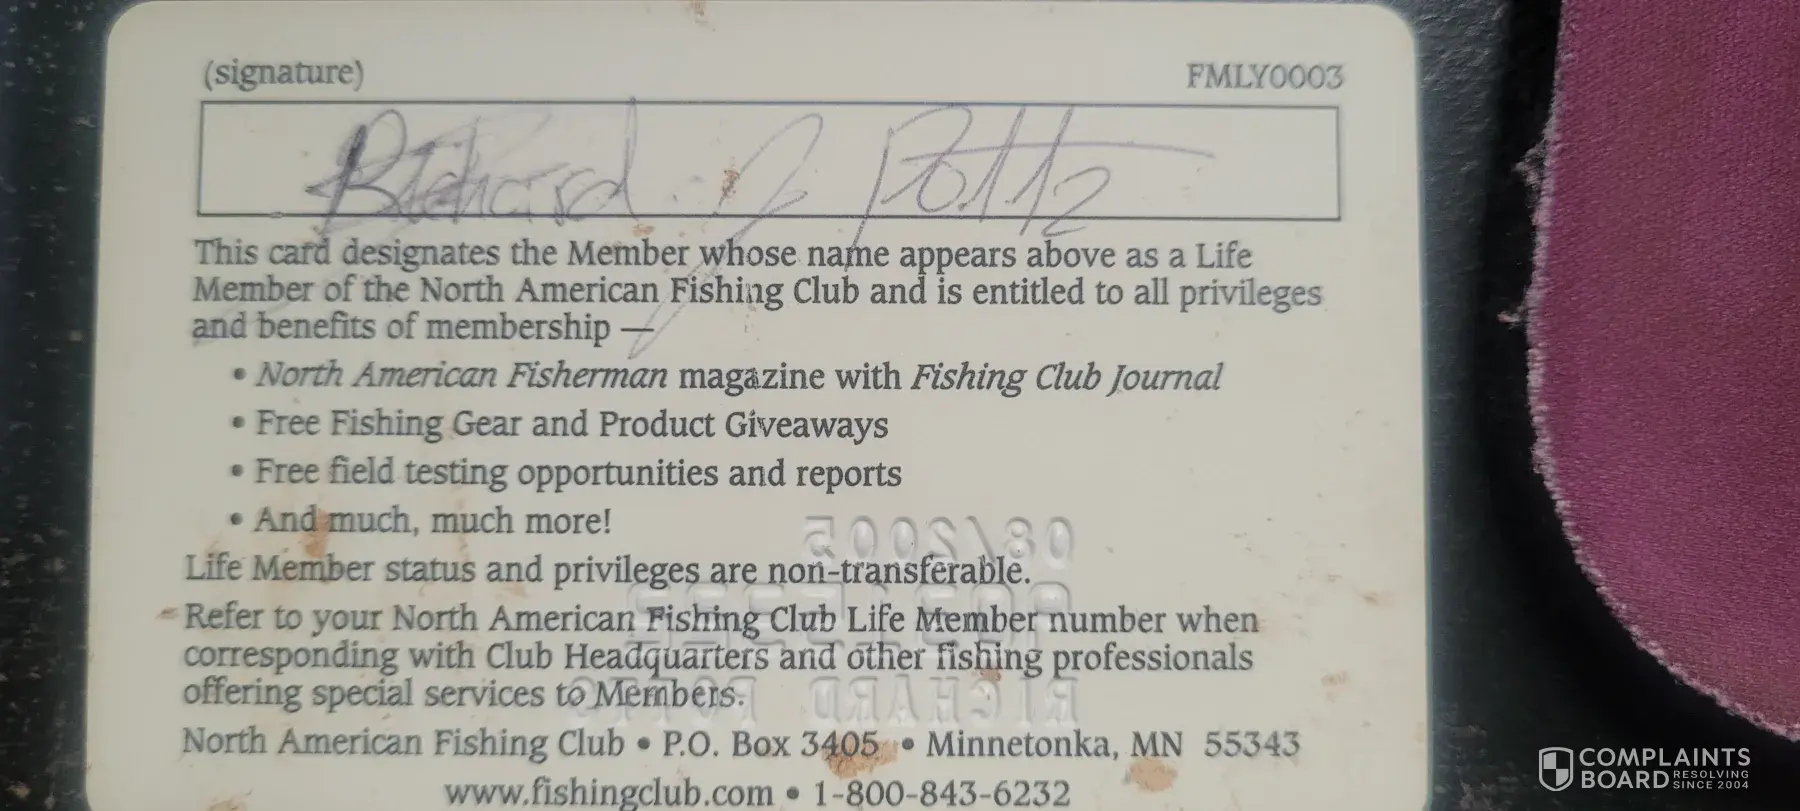 (signature)
FMLY0003
Richard J Potts
This card designates the Member whose name appears above as a Life
Member of the North American Fishing Club and is entitled to all privileges
and benefits of membership —
• North American Fisherman magazine with Fishing Club Journal
• Free Fishing Gear and Product Giveaways
• Free field testing opportunities and reports
• And much, much more!
08/2005
Life Member status and privileges are non-transferable.
Refer to your North American Fishing Club Life Member number when
corresponding with Club Headquarters and other fishing professionals
offering special services to Members.
RICHARD POTTS
North American Fishing Club • P.O. Box 3405 • Minnetonka, MN 55343
www.fishingclub.com • 1-800-843-6232
COMPLAINTS
BOARD RESOLVING SINCE 2004